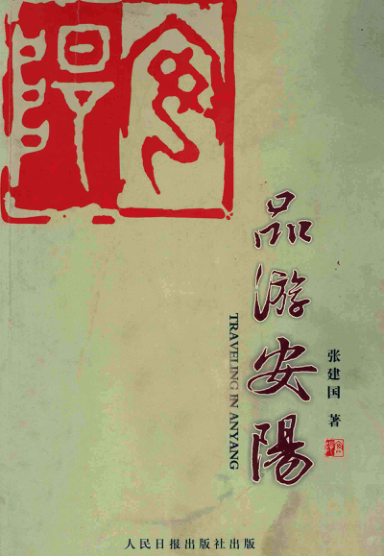 安陽
品游安陽
TRAVELING IN ANYANG
张建国 著
安陽
人民日报出版社出版